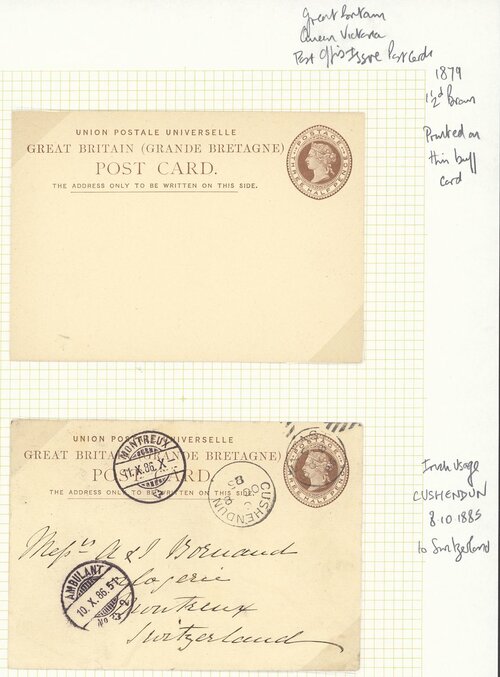 Great Britain
Queen Victoria
Post Office Issue Post Cards
1879
1½d Brown
Printed on
thin buff
card
UNION POSTALE UNIVERSELLE
GREAT BRITAIN (GRANDE BRETAGNE)
POST CARD.
THE ADDRESS ONLY TO BE WRITTEN ON THIS SIDE.
POSTAGE
THREE HALF PENCE
UNION POSTALE UNIVERSELLE
GREAT BRITAIN (GRANDE BRETAGNE)
POST CARD.
THE ADDRESS ONLY TO BE WRITTEN ON THIS SIDE.
MONTREUX
11.X.86.X
CUSHENDUN
Irish Usage
CUSHENDUN
8 10 1885
to Switzerland
Messrs A & J Bornand
Montreux
Switzerland
AMBULANT
10.X.86.5
No 2